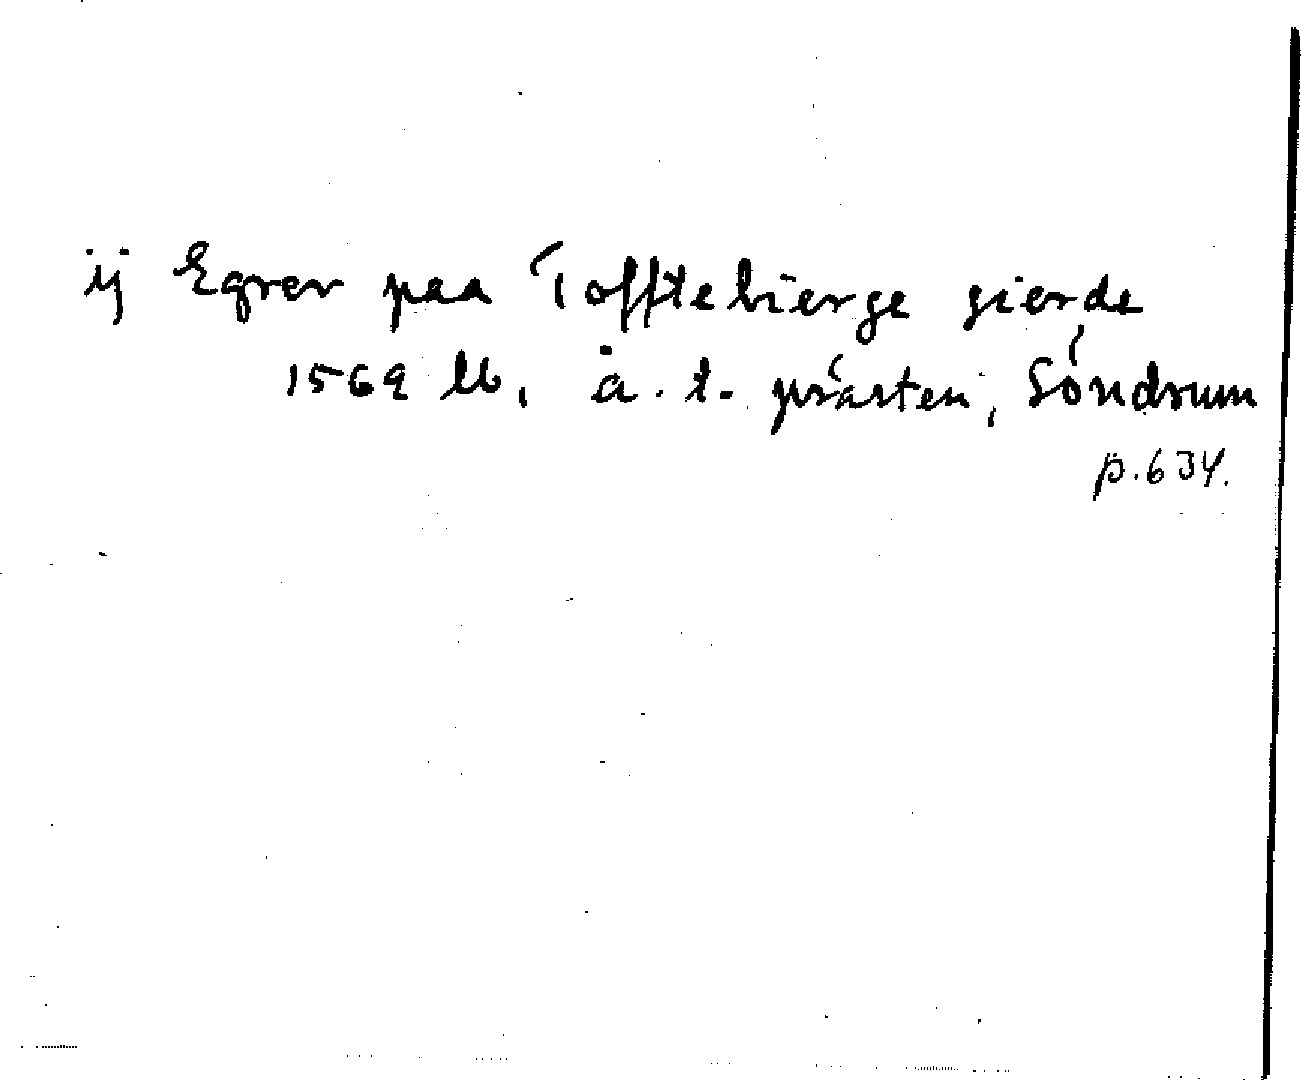 ij Egrer paa Tofftebierge gierde
1569 lb, å. t. prästen, Söndrum
p. 634.